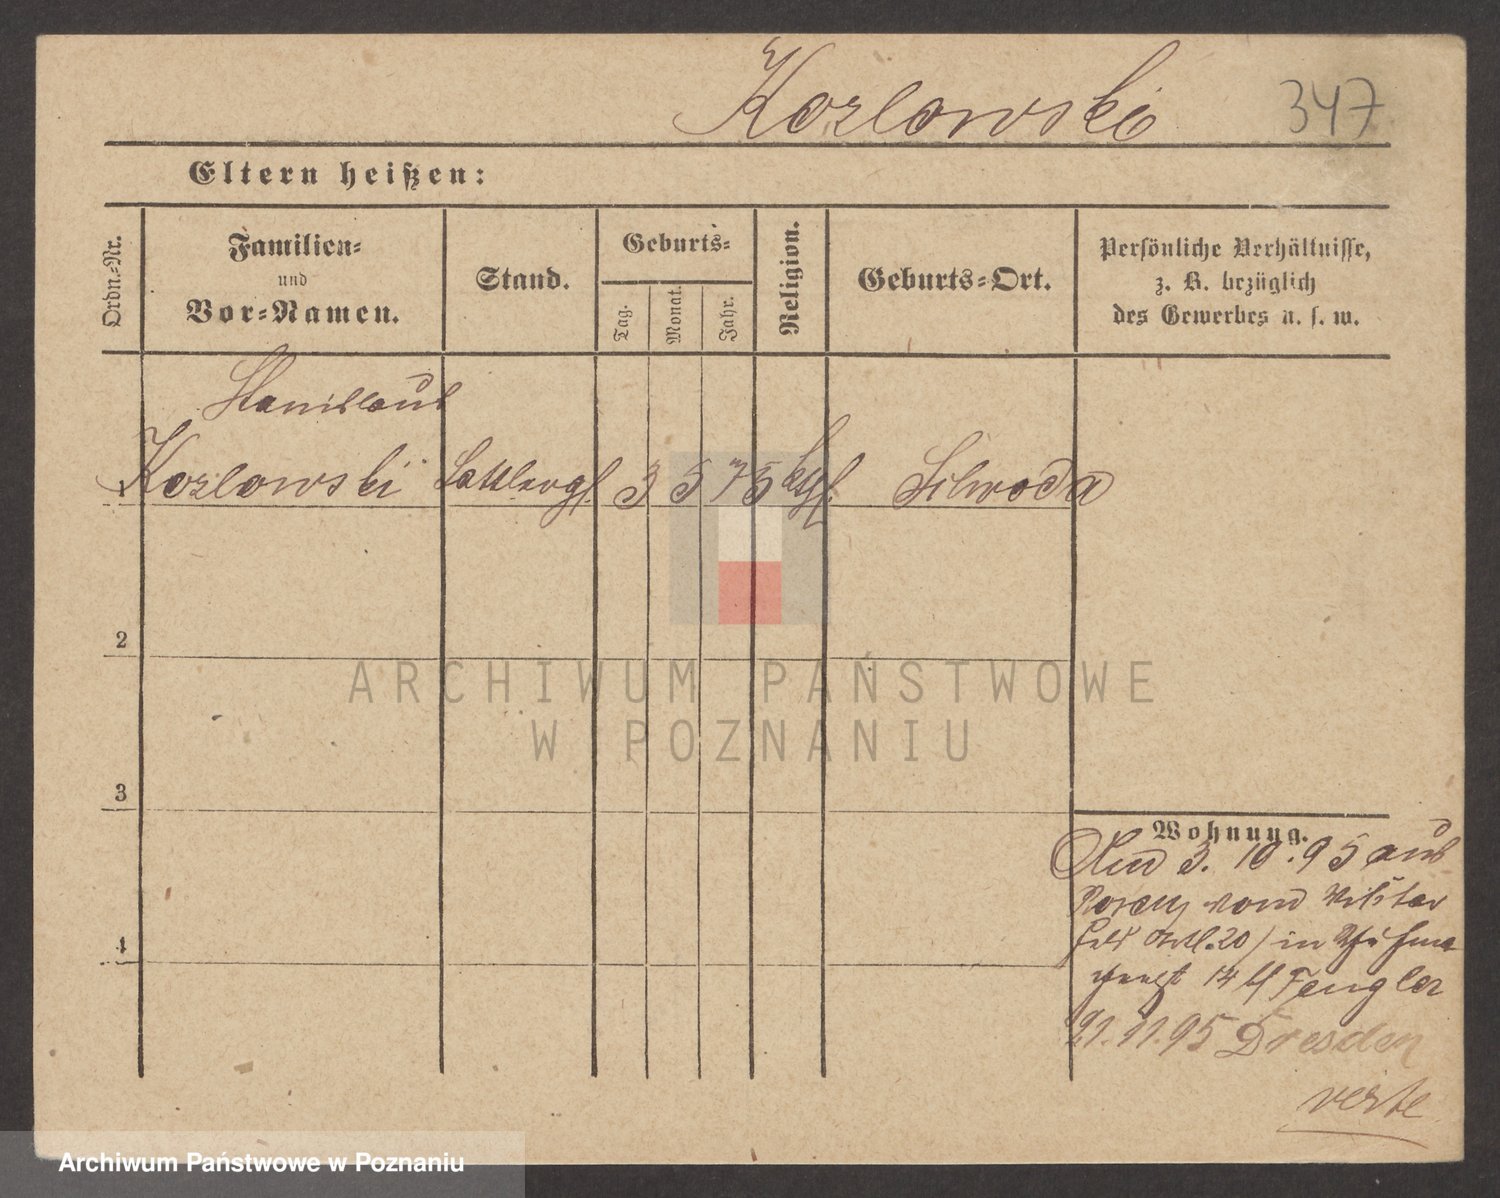 Kozlowski 347
Eltern heißen:
Ordn.-Nr.
Familien-
und
Vor-Namen.
Stand.
Geburts-
Tag.
Monat.
Jahr.
Religion.
Geburts-Ort.
Persönliche Verhältnisse,
z. B. bezüglich
des Gewerbes u. s. w.
Stanislaus
1 Kozlowski Sattlergs. 3 5 75 kth.
2
3
4
ARCHIWUM PAŃSTWOWE
W POZNANIU
Wohnung.
3. 10. 95 aus
vom Militär
Feld Artl. 20) in
14 b/ Tengler
21. 11. 95 Dresden
verte
Archiwum Państwowe w Poznaniu